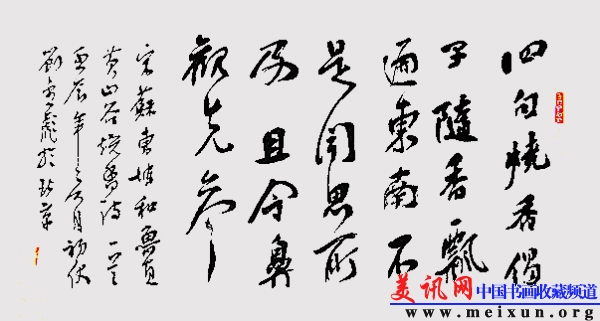 四句燒香偈
子隨香飄
遍東南不
是聞思所
及且令鼻
觀先參
宋蘇東坡和魯直
黃山谷燒香詩一首
辰年月初伏
劉彪於
美讯网 中国书画收藏频道
www.meixun.org